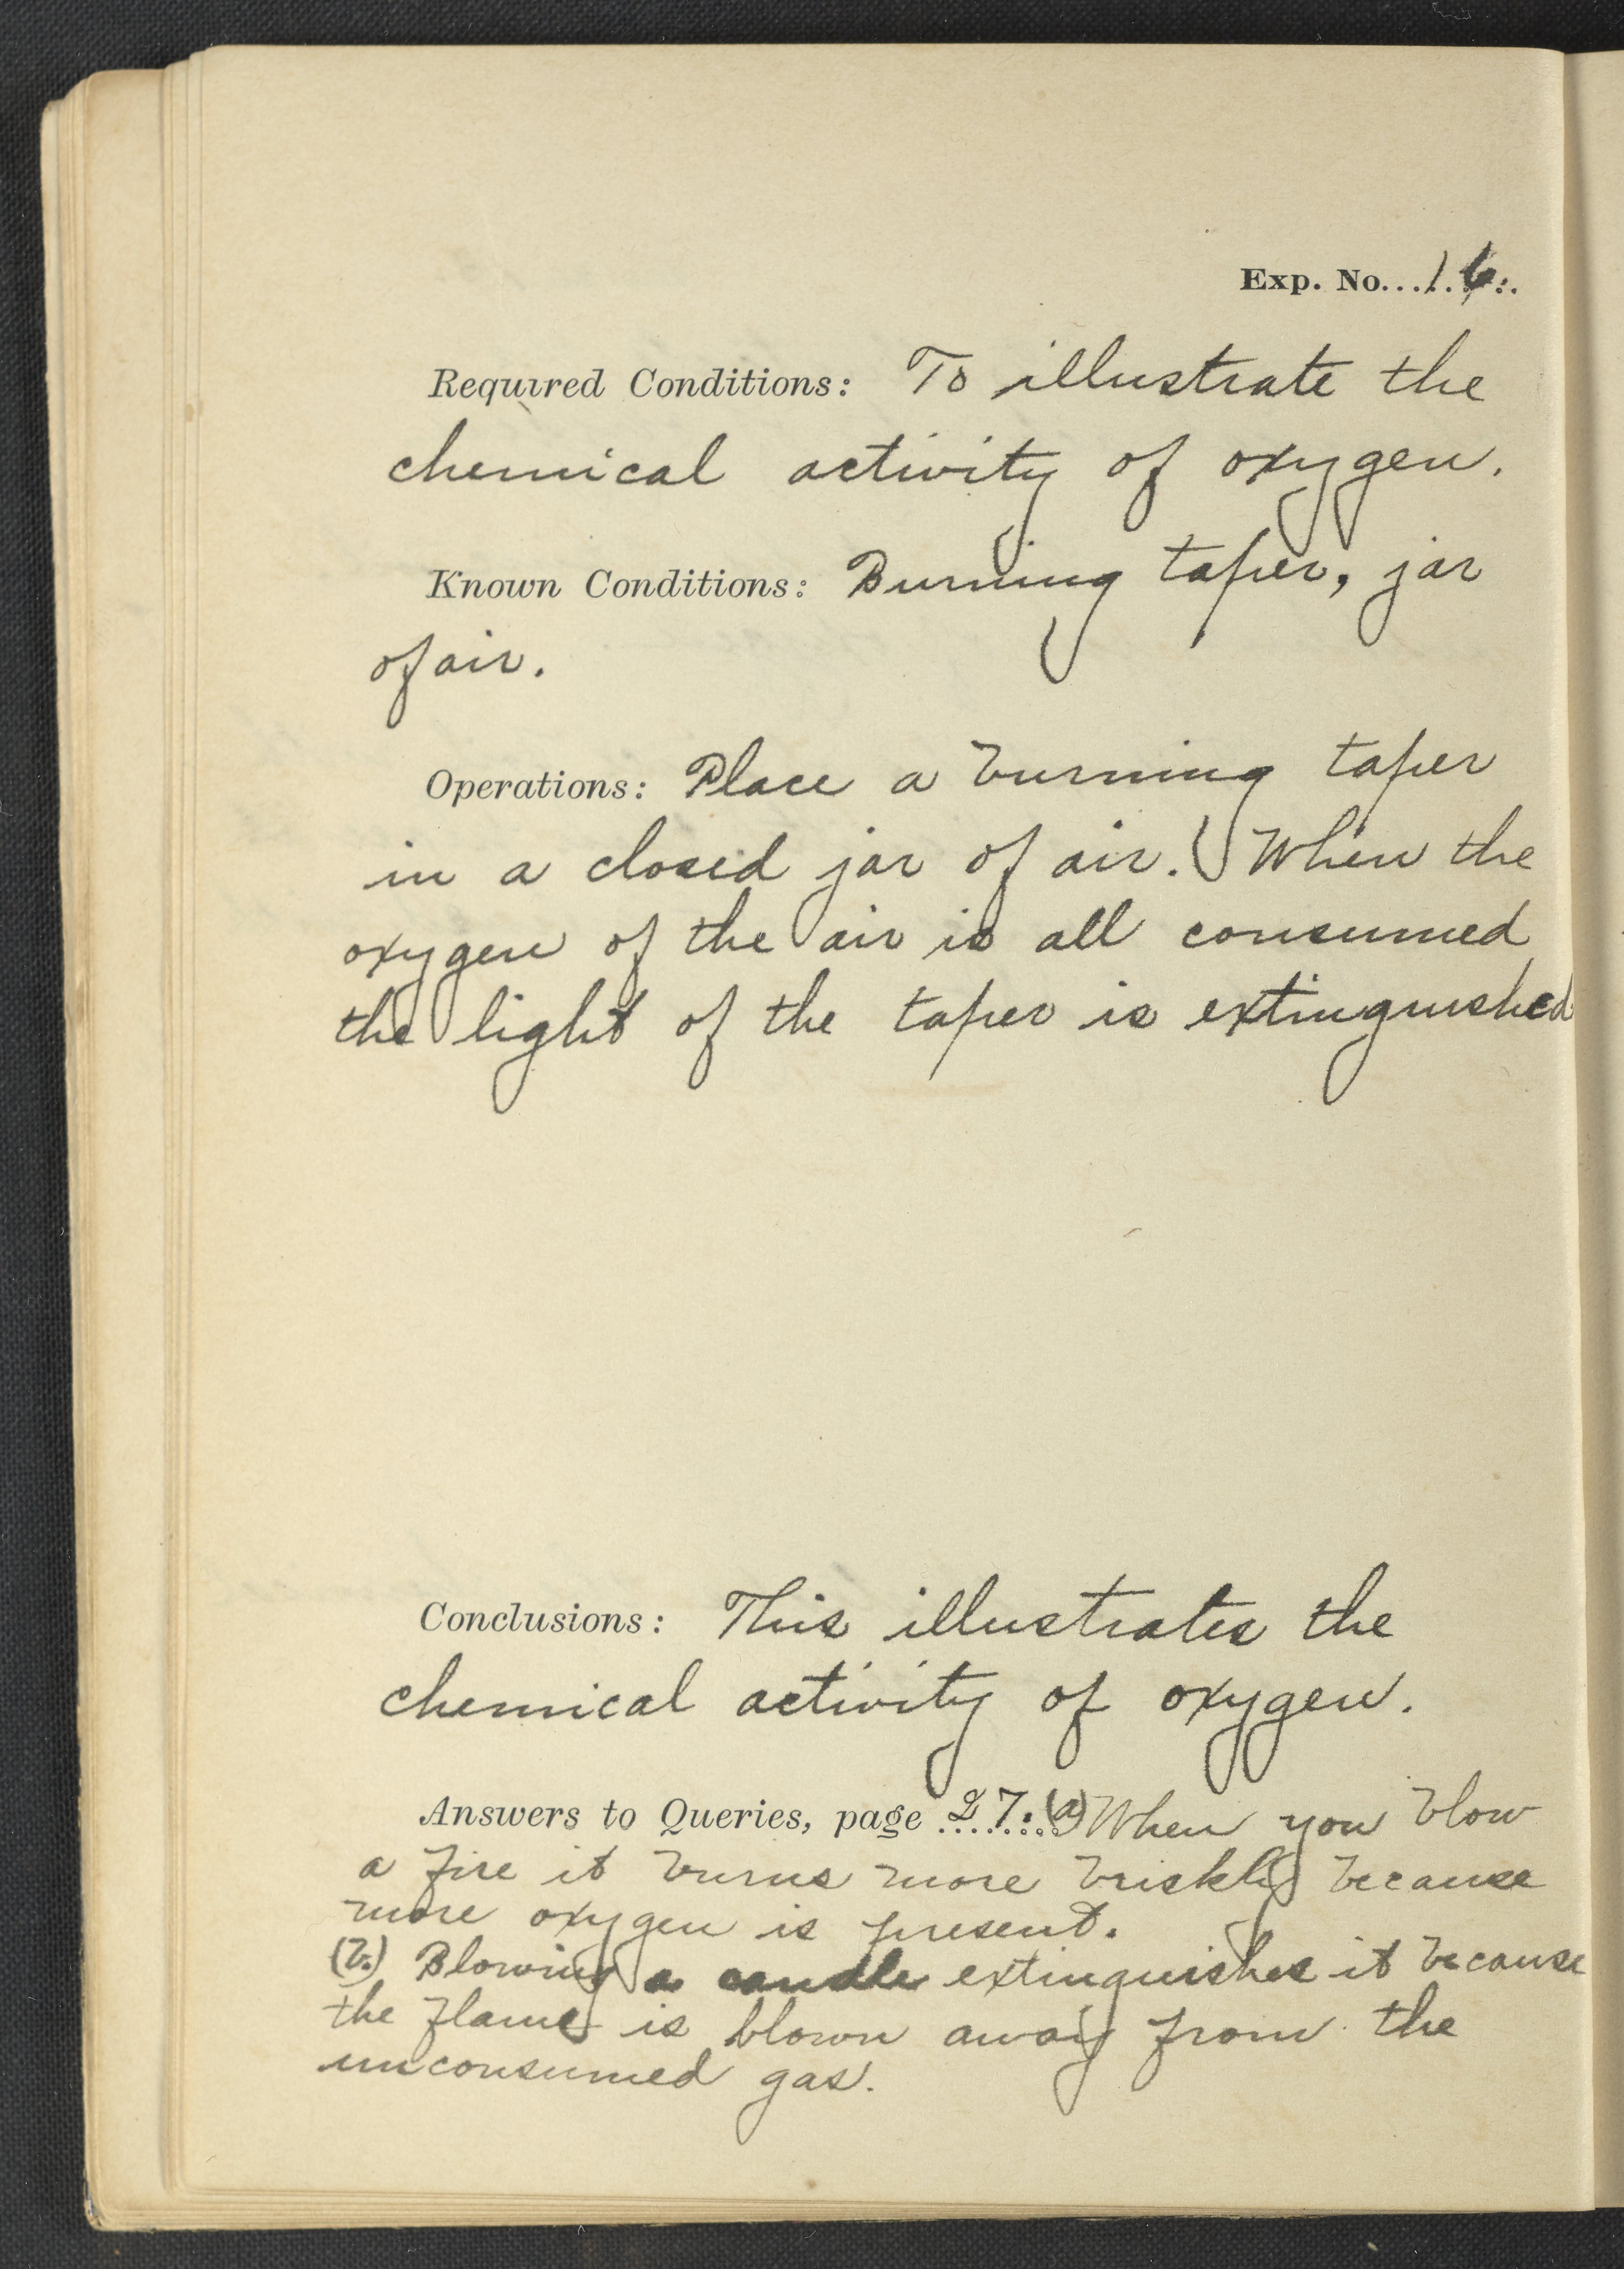 Exp. No...16..
Required Conditions: To illustrate the
chemical activity of oxygen.
Known Conditions: Burning taper, jar
of air.
Operations: Place a burning taper
in a closed jar of air. When the
oxygen of the air is all consumed
the light of the taper is extinguished
Conclusions: This illustrates the
chemical activity of oxygen.
Answers to Queries, page 27. (a) When you blow
a fire it burns more briskly because
more oxygen is present.
(b.) Blowing a candle extinguishes it because
the flame is blown away from the
unconsumed gas.